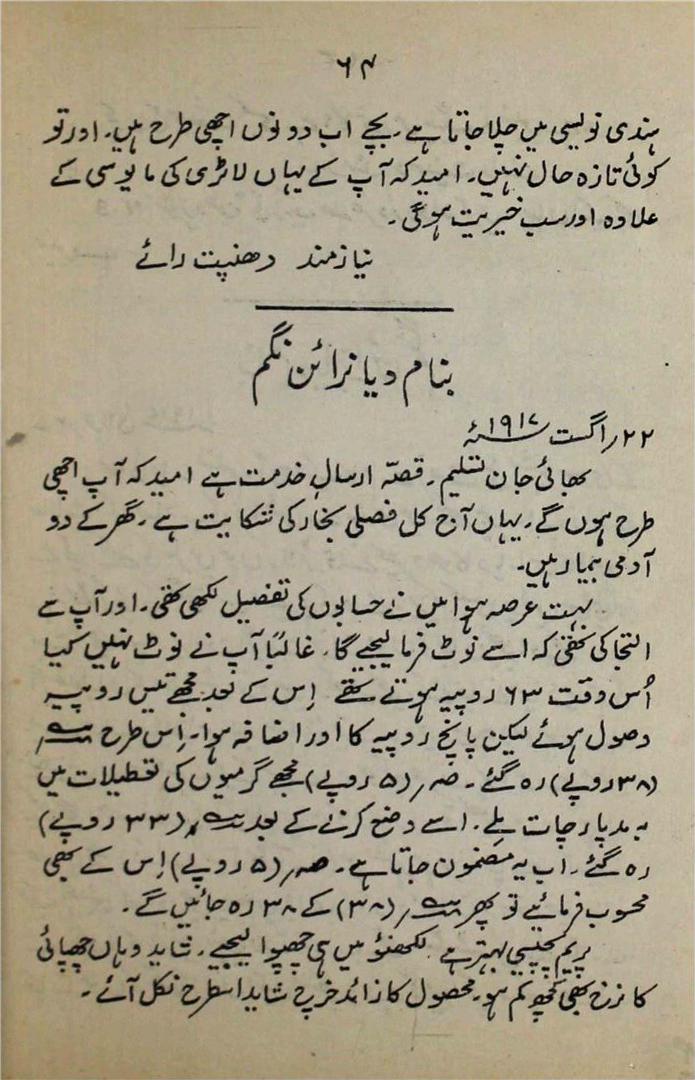 ۶۴
ہندی نویسی میں چلا جاتا ہے۔ بچے اب دونوں اچھی طرح ہیں۔ اور تو
کوئی تازہ حال نہیں۔ امید کہ آپ کے یہاں لاٹری کی مایوسی کے
علاوہ اور سب خیریت ہوگی۔
نیازمند دھنپت رائے
بنام دیا نرائن نگم
۲۲؍ اگست ۱۹۱۷ء
بھائی جان تسلیم۔ قصّہ ارسالِ خدمت ہے امید کہ آپ اچھی
طرح ہوں گے۔ یہاں آج کل فصلی بخار کی شکایت ہے۔ گھر کے دو
آدمی بیمار ہیں۔
بہت عرصہ ہوا میں نے حسابوں کی تفصیل لکھی تھی۔ اور آپ سے
التجا کی تھی کہ اسے نوٹ فرما لیجیے گا۔ غالباً آپ نے نوٹ نہیں کیا
اُس وقت ۶۳ روپیے ہوتے تھے اِس کے بعد مجھے تیس روپیہ
وصول ہوئے لیکن پانچ روپیہ کا اور اضافہ ہوا۔ اِس طرح
(۳۸ روپے) رہ گئے۔ صہ؍ (۵ روپے) مجھے گرمیوں کی تعطیلات میں
بہ مد پارچات ملے۔ اسے وضع کرنے کے بعد (۳۳ روپے)
رہ گئے۔ اب یہ مضمون جاتا ہے۔ صہ؍ (۵ روپے) اِس کے بھی
محسوب فرمائیے تو پھر (۳۸) کے ۳۸ رہ جائیں گے۔
پریم پچیسی بہتر ہے لکھنؤ میں ہی چھپوا لیجیے۔ شاید وہاں چھپائی
کا نرخ بھی کچھ کم ہو۔ محصول کا زائد خرچ شاید اسطرح نکل آئے۔